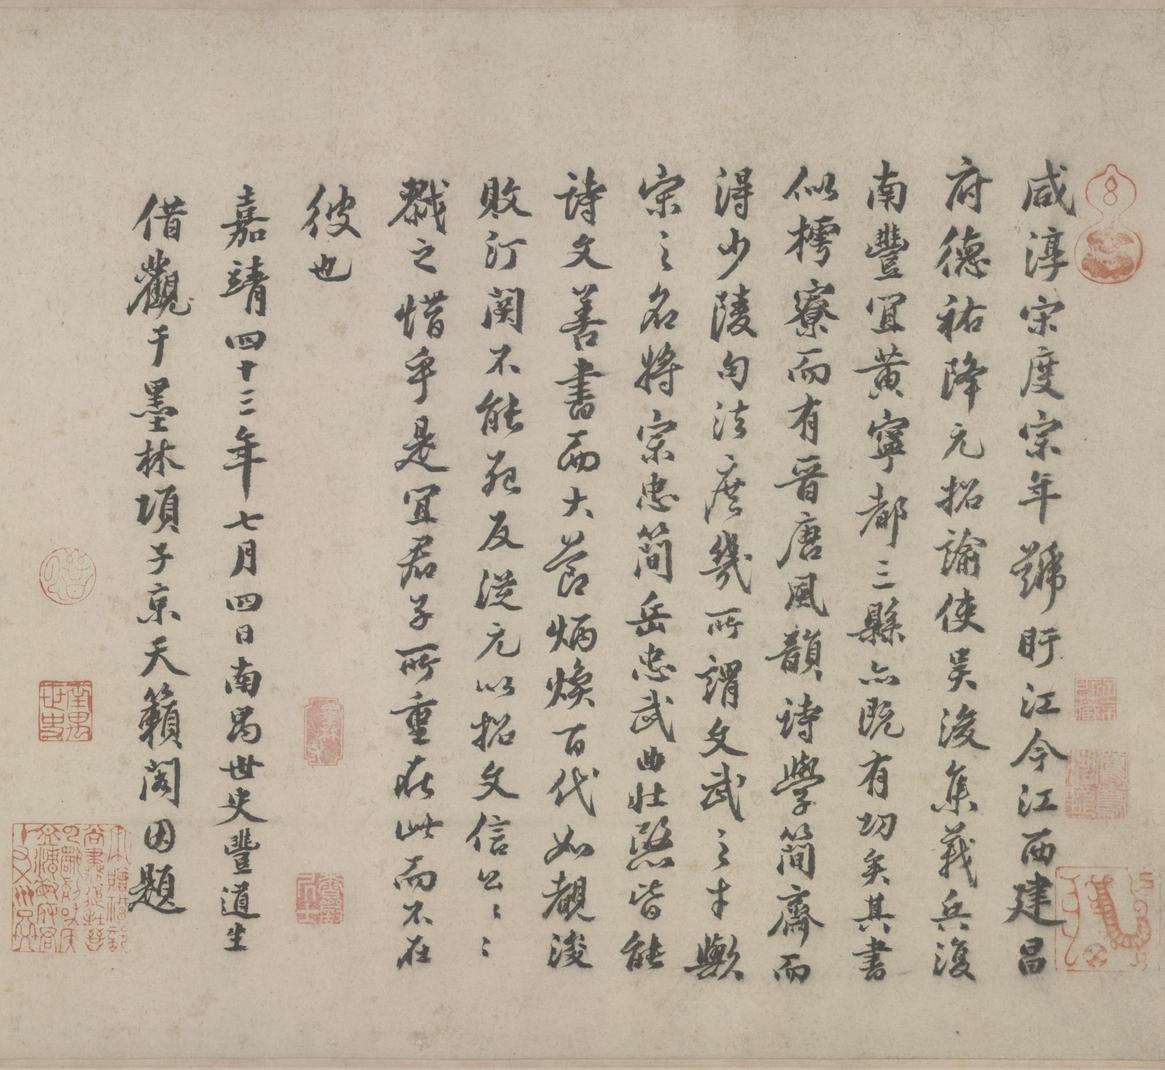 咸淳宋度宗年號盱江今江西建昌
府德祐降元招諭使吳浚集義兵復
南豐宜黃寧都三縣亦既有功矣其書
似樗寮而有晉唐風韻詩學簡齋而
得少陵句法庶幾所謂文武之才歟
宋之名將宗忠簡岳忠武曲壯愍皆能
詩文善書而大節炳煥百代如覩浚
敗汀關不能死反從元以招文信公公
戮之惜乎是宜君子所重在此而不在
彼也
嘉靖四十三年七月四日南禺世史豐道生
借觀于墨林項子京天籟閣因題